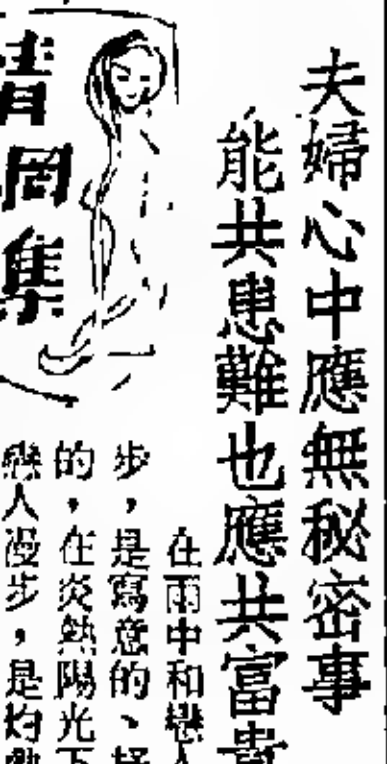 夫婦心中應無秘密事
能共患難也應共富貴
在雨中和戀人
步，是寫意的、
的，在炎熱陽光下
戀人漫步，是灼熱
集